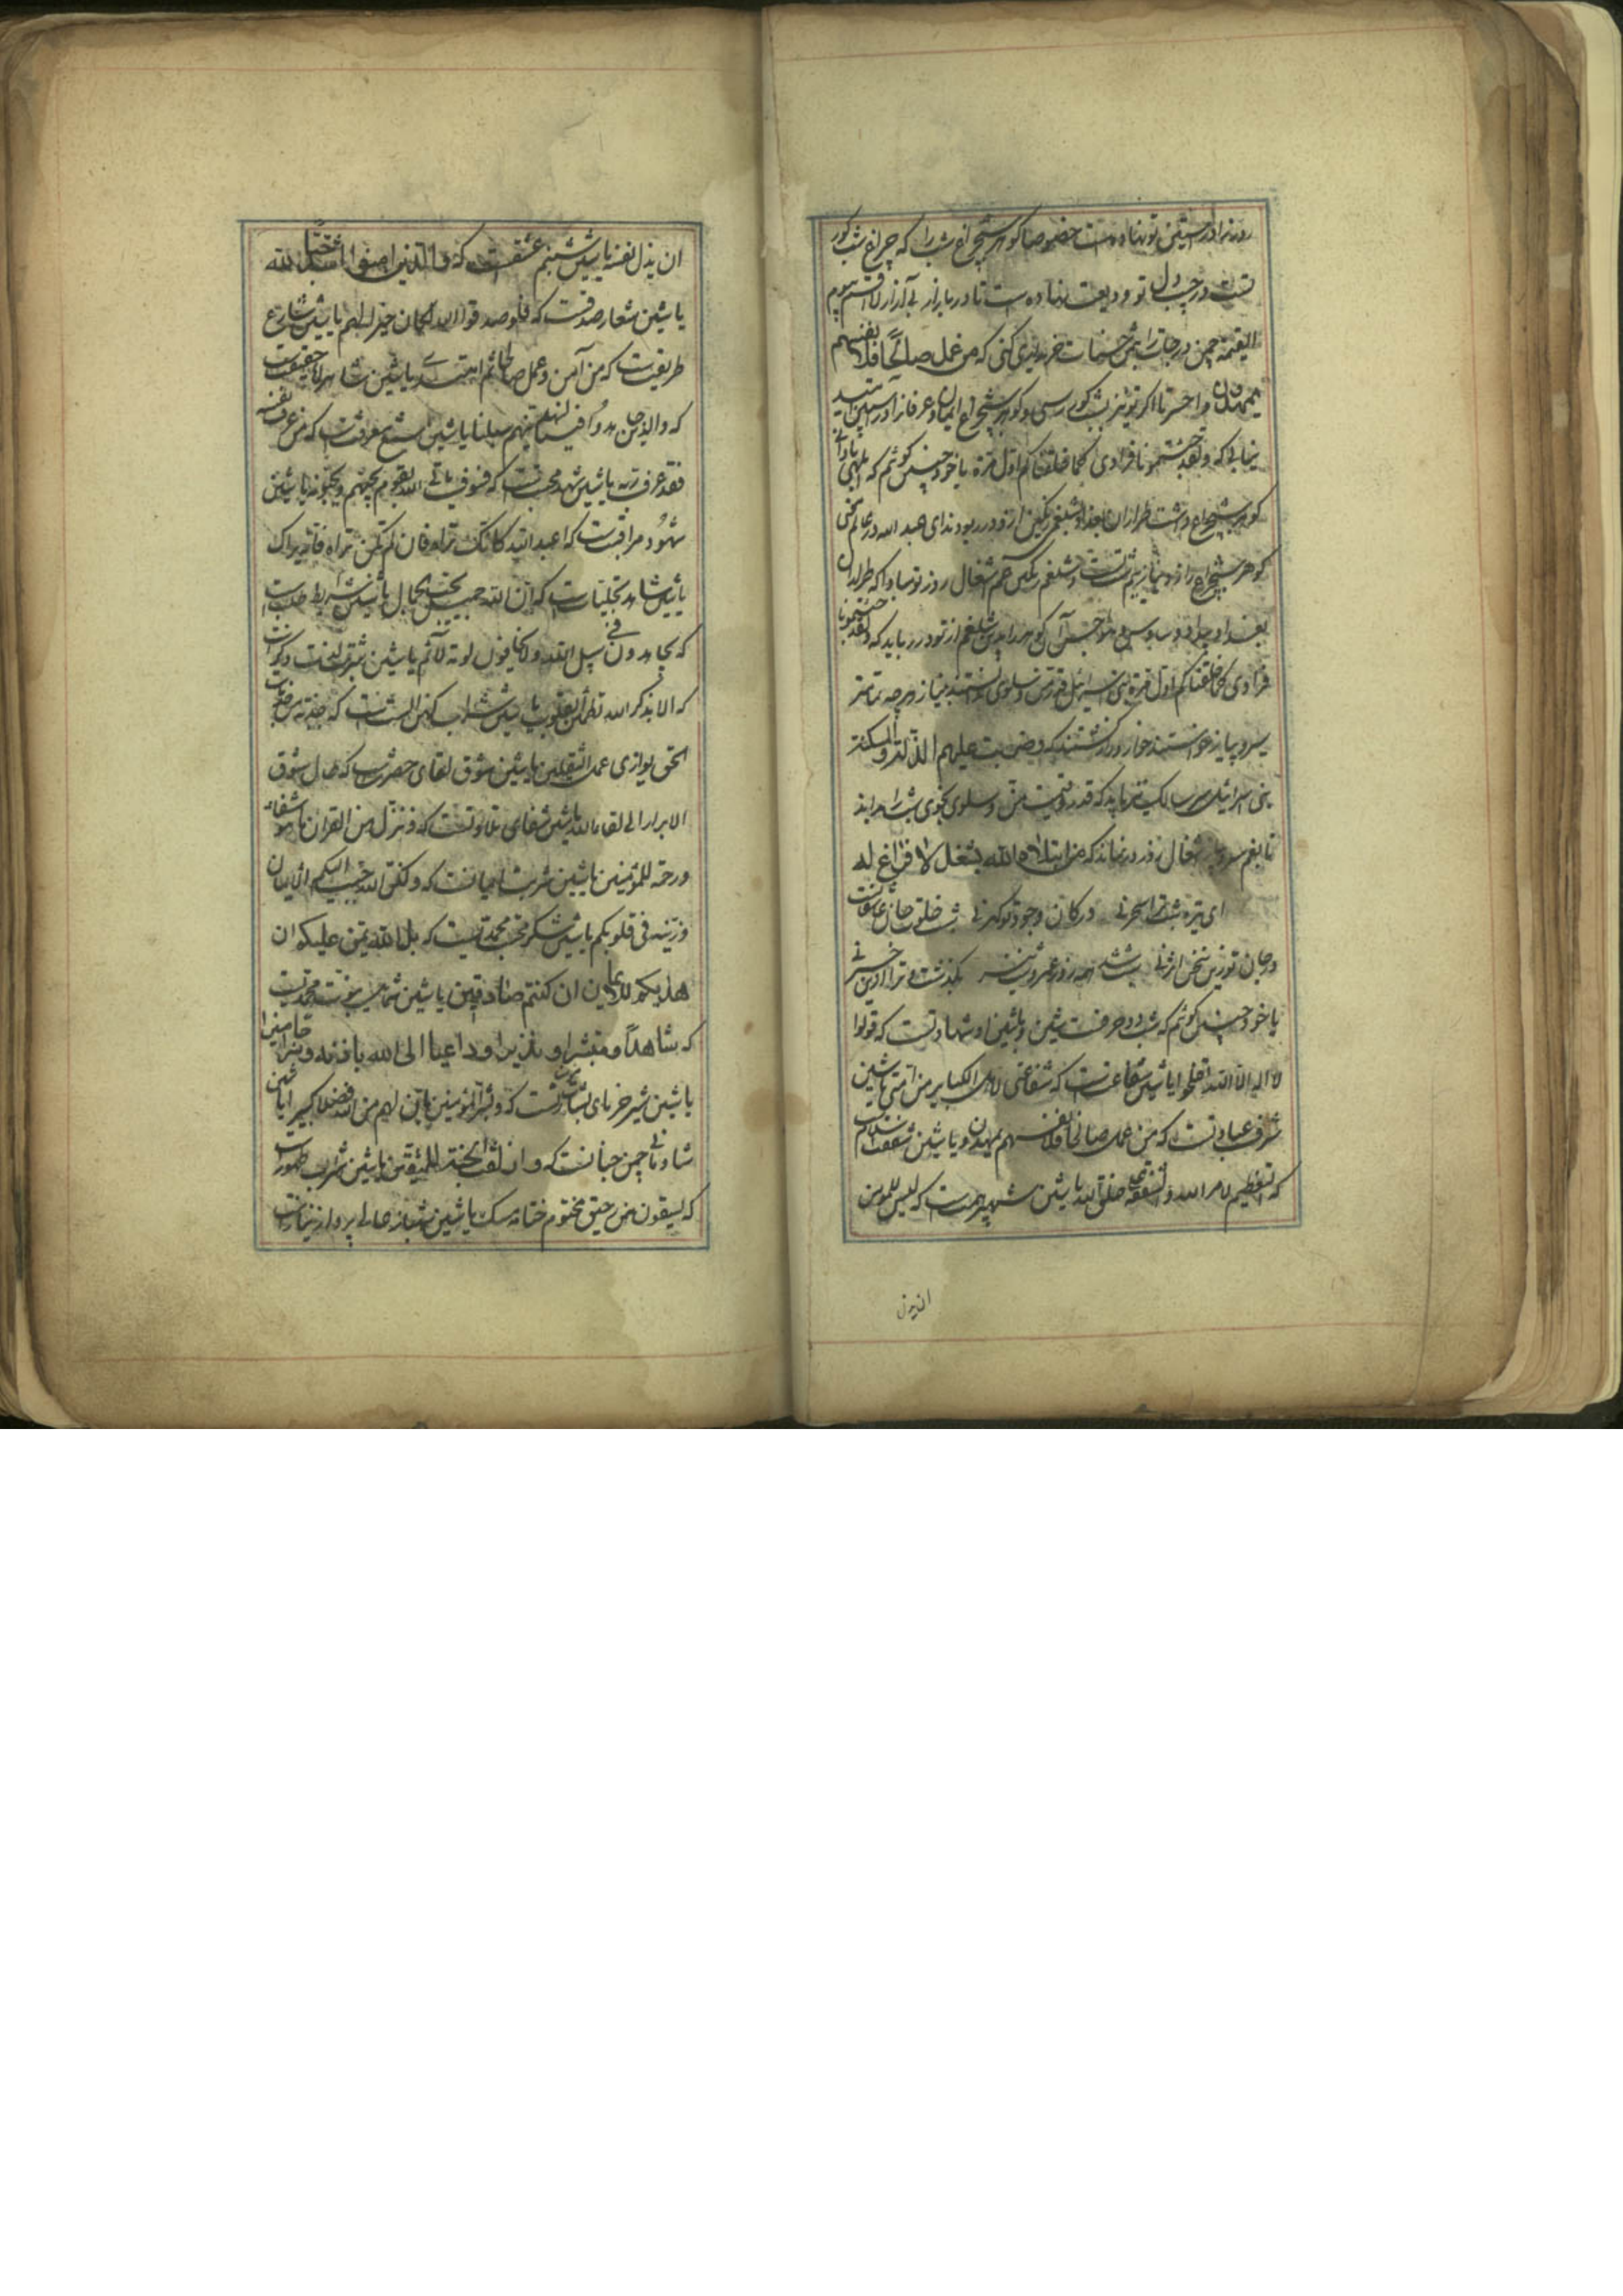 روز ترا در آستین تو نهاده است خصوصا کوهر شبچراغ شب را که چراغ شب کور
تست در جیب دل تو ودیعت نهاده است تا در بازار بی آزار لا اقسم بیوم
القیمة چمن درجات را بثمن حسنات خریداری کنی که من عمل صالحا فلانفسهم
یمهدون وا حسرتا اکر تو نیز بشب کوری رسی و کوهر شبچراغ ایمان و عرفانرا در آستین
نیابی که ولقد جئتمونا فرادی کما خلقناکم اول مرة با خود حسن کوئم که
کوهر شبچراغ طراران بغداد بشلغم رنکین از تو در ربودند ای عبد الله در عالم
کوهر شبچراغ راز و نیاز نیم شب تست و شلغم رنکین هم اشغال روز تو مبادا که طراران
بغداد وساوس و هواجس آن کوهر را بدین شلغم از تو در رباید که ولقد جئتمونا
فرادی کما خلقناکم اول مرة بنی اسرائیل قدر من و سلوی ندانستند
سیر و پیاز خواستند خوار و زار کشتند که وضربت علیهم الذلة والمسکنة
بنی اسرائیل سالک باید که قدر و قیمت من و سلوی شب را بداند
تا بغم سیر و پیاز اشغال روز در نماند که من ابتلاه الله بشغل لا فراغ له
ای تیره شب ترا سحر نی در کان وجود تو کهر نی شب خلوت جان عاشقانست
در جان تو زین سخن اثر نی شد روز عمر و نیز بگذشت و ترا ازین خبر نی
با خود حسن کوئم که شب دو حرفست شین و با شین او شهادتست که قولوا
لا اله الا الله تفلحوا یا شین شفاعتست که شفاعتی لاهل الکبایر من امتی یا شین
شرف عبادتست که من عمل صالحا فلانفسهم یمهدون و یا شین شفقت
که التعظیم لامر الله والشفقة علی خلق الله یا شین شهپر همت است که لیس للمؤمن
ان یذل
ان یذل نفسه یا شین شبنم عشقست که والذین امنوا اشد حبا لله
یا شین شعار صدقست که فلو صدقوا الله لکان خیرا لهم یا شین شارع
طریقت است که من آمن وعمل صالحا ثم اهتدی یا شین شاهراه حقیقت
که والذین جاهدوا فینا لنهدینهم سبلنا یا شین شمع معرفت است که من عرف نفسه
فقد عرف ربه یا شین شهد محبتست که فسوف یاتی الله بقوم یحبهم ویحبونه یا شین
شهود مراقبت است که اعبد الله کانک تراه فان لم تکن تراه فانه یراک
یا شین شاهد تجلیات است که ان الله جمیل یحب الجمال یا شین شرایط طلب است
که یجاهدون فی سبیل الله ولا یخافون لومة لائم یا شین شربت
که الا بذکر الله تطمئن القلوب یا شین شراب کهن الست است که جذبة من جذبات
الحق یوازی عمل الثقلین یا شین شوق لقای حضرتست که طال شوق
الابرار الی لقاء الله یا شین شفای تلاوتست که وننزل من القران ما هو شفاء
ورحمة للمؤمنین یا شین شربت ایمانست که ولکن الله حبب الیکم الایمان
وزینه فی قلوبکم یا شین شکر محمدتست که بل الله یمن علیکم ان
هدیکم للایمان ان کنتم صادقین یا شین شمایل محمدیست
که شاهدا ومبشرا ونذیرا وداعیا الی الله باذنه وسراجا منیرا
یا شین شیر خرمای بشارتست که وبشر المؤمنین بان لهم من الله فضلا کبیرا یا شین
شادمانی چمن جنانست که وازلفت الجنة للمتقین یا شین شراب طهور است
که یسقون من رحیق مختوم ختامه مسک یا شین شهباز عالی پرواز